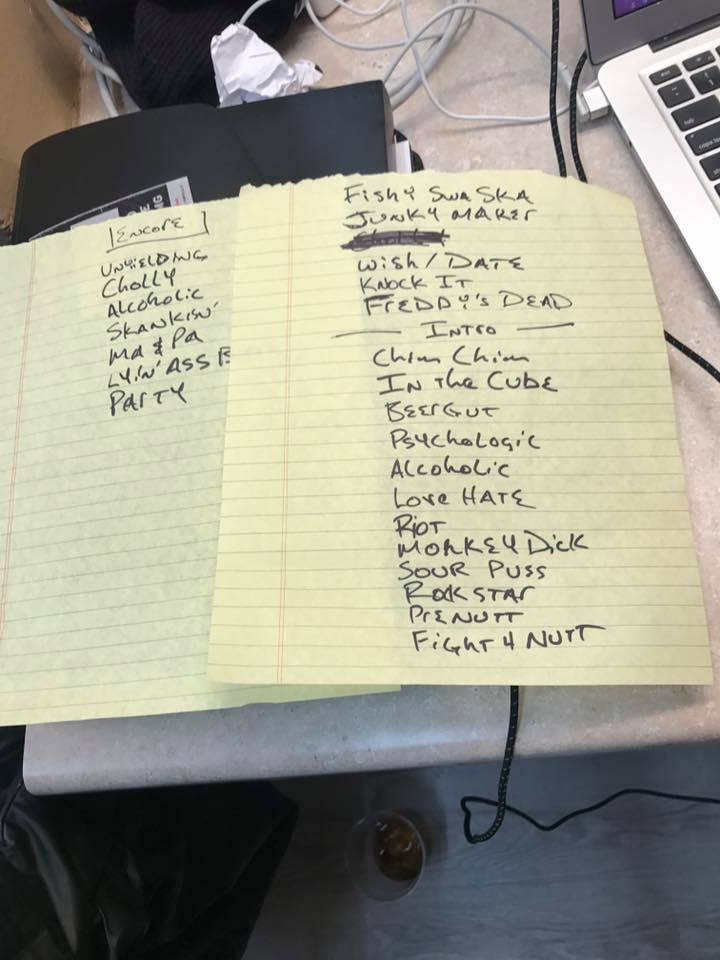 ENCORE
UNYIELDING
CHOLLY
ALCOHOLIC
SKANKIN'
MA & PA
LYIN' ASS B
PARTY
FISHY SWA SKA
JUNKY MAKER
WISH / DATE
KNOCK IT
FREDDY'S DEAD
INTRO
CHIM CHIM
IN THE CUBE
BEERGUT
PSYCHOLOGIC
ALCOHOLIC
LOVE HATE
RIOT
MONKEY DICK
SOUR PUSS
ROCKSTAR
PRENUTT
FIGHT 4 NUTT